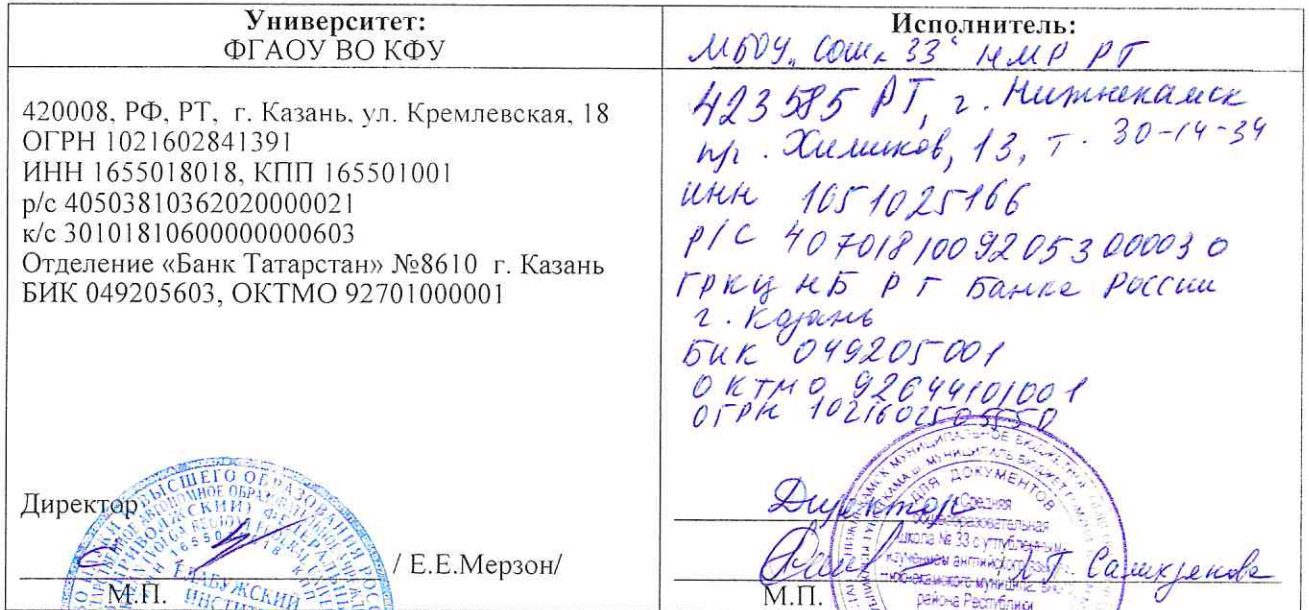 Университет:
ФГАОУ ВО КФУ
420008, РФ, РТ, г. Казань, ул. Кремлевская, 18
ОГРН 1021602841391
ИНН 1655018018, КПП 165501001
р/с 40503810362020000021
к/с 30101810600000000603
Отделение «Банк Татарстан» №8610 г. Казань
БИК 049205603, ОКТМО 92701000001
Директор
/ Е.Е.Мерзон/
М.П.
Исполнитель:
МБОУ „СОШ № 33“ НМР РТ
423585 РТ, г. Нижнекамск
пр. Химиков, 13, т. 30-14-34
ИНН 1651025166
р/с 40701810092053000030
ГРКЦ НБ РТ Банка России
г. Казань
БИК 049205001
ОКТМО 92644101001
ОГРН 1021602505550
Директор
М.П.
ДЛЯ ДОКУМЕНТОВ
Средняя
общеобразовательная
школа № 33 с углубленным
изучением английского языка
района Республики
ЕЛАБУЖСКИЙ